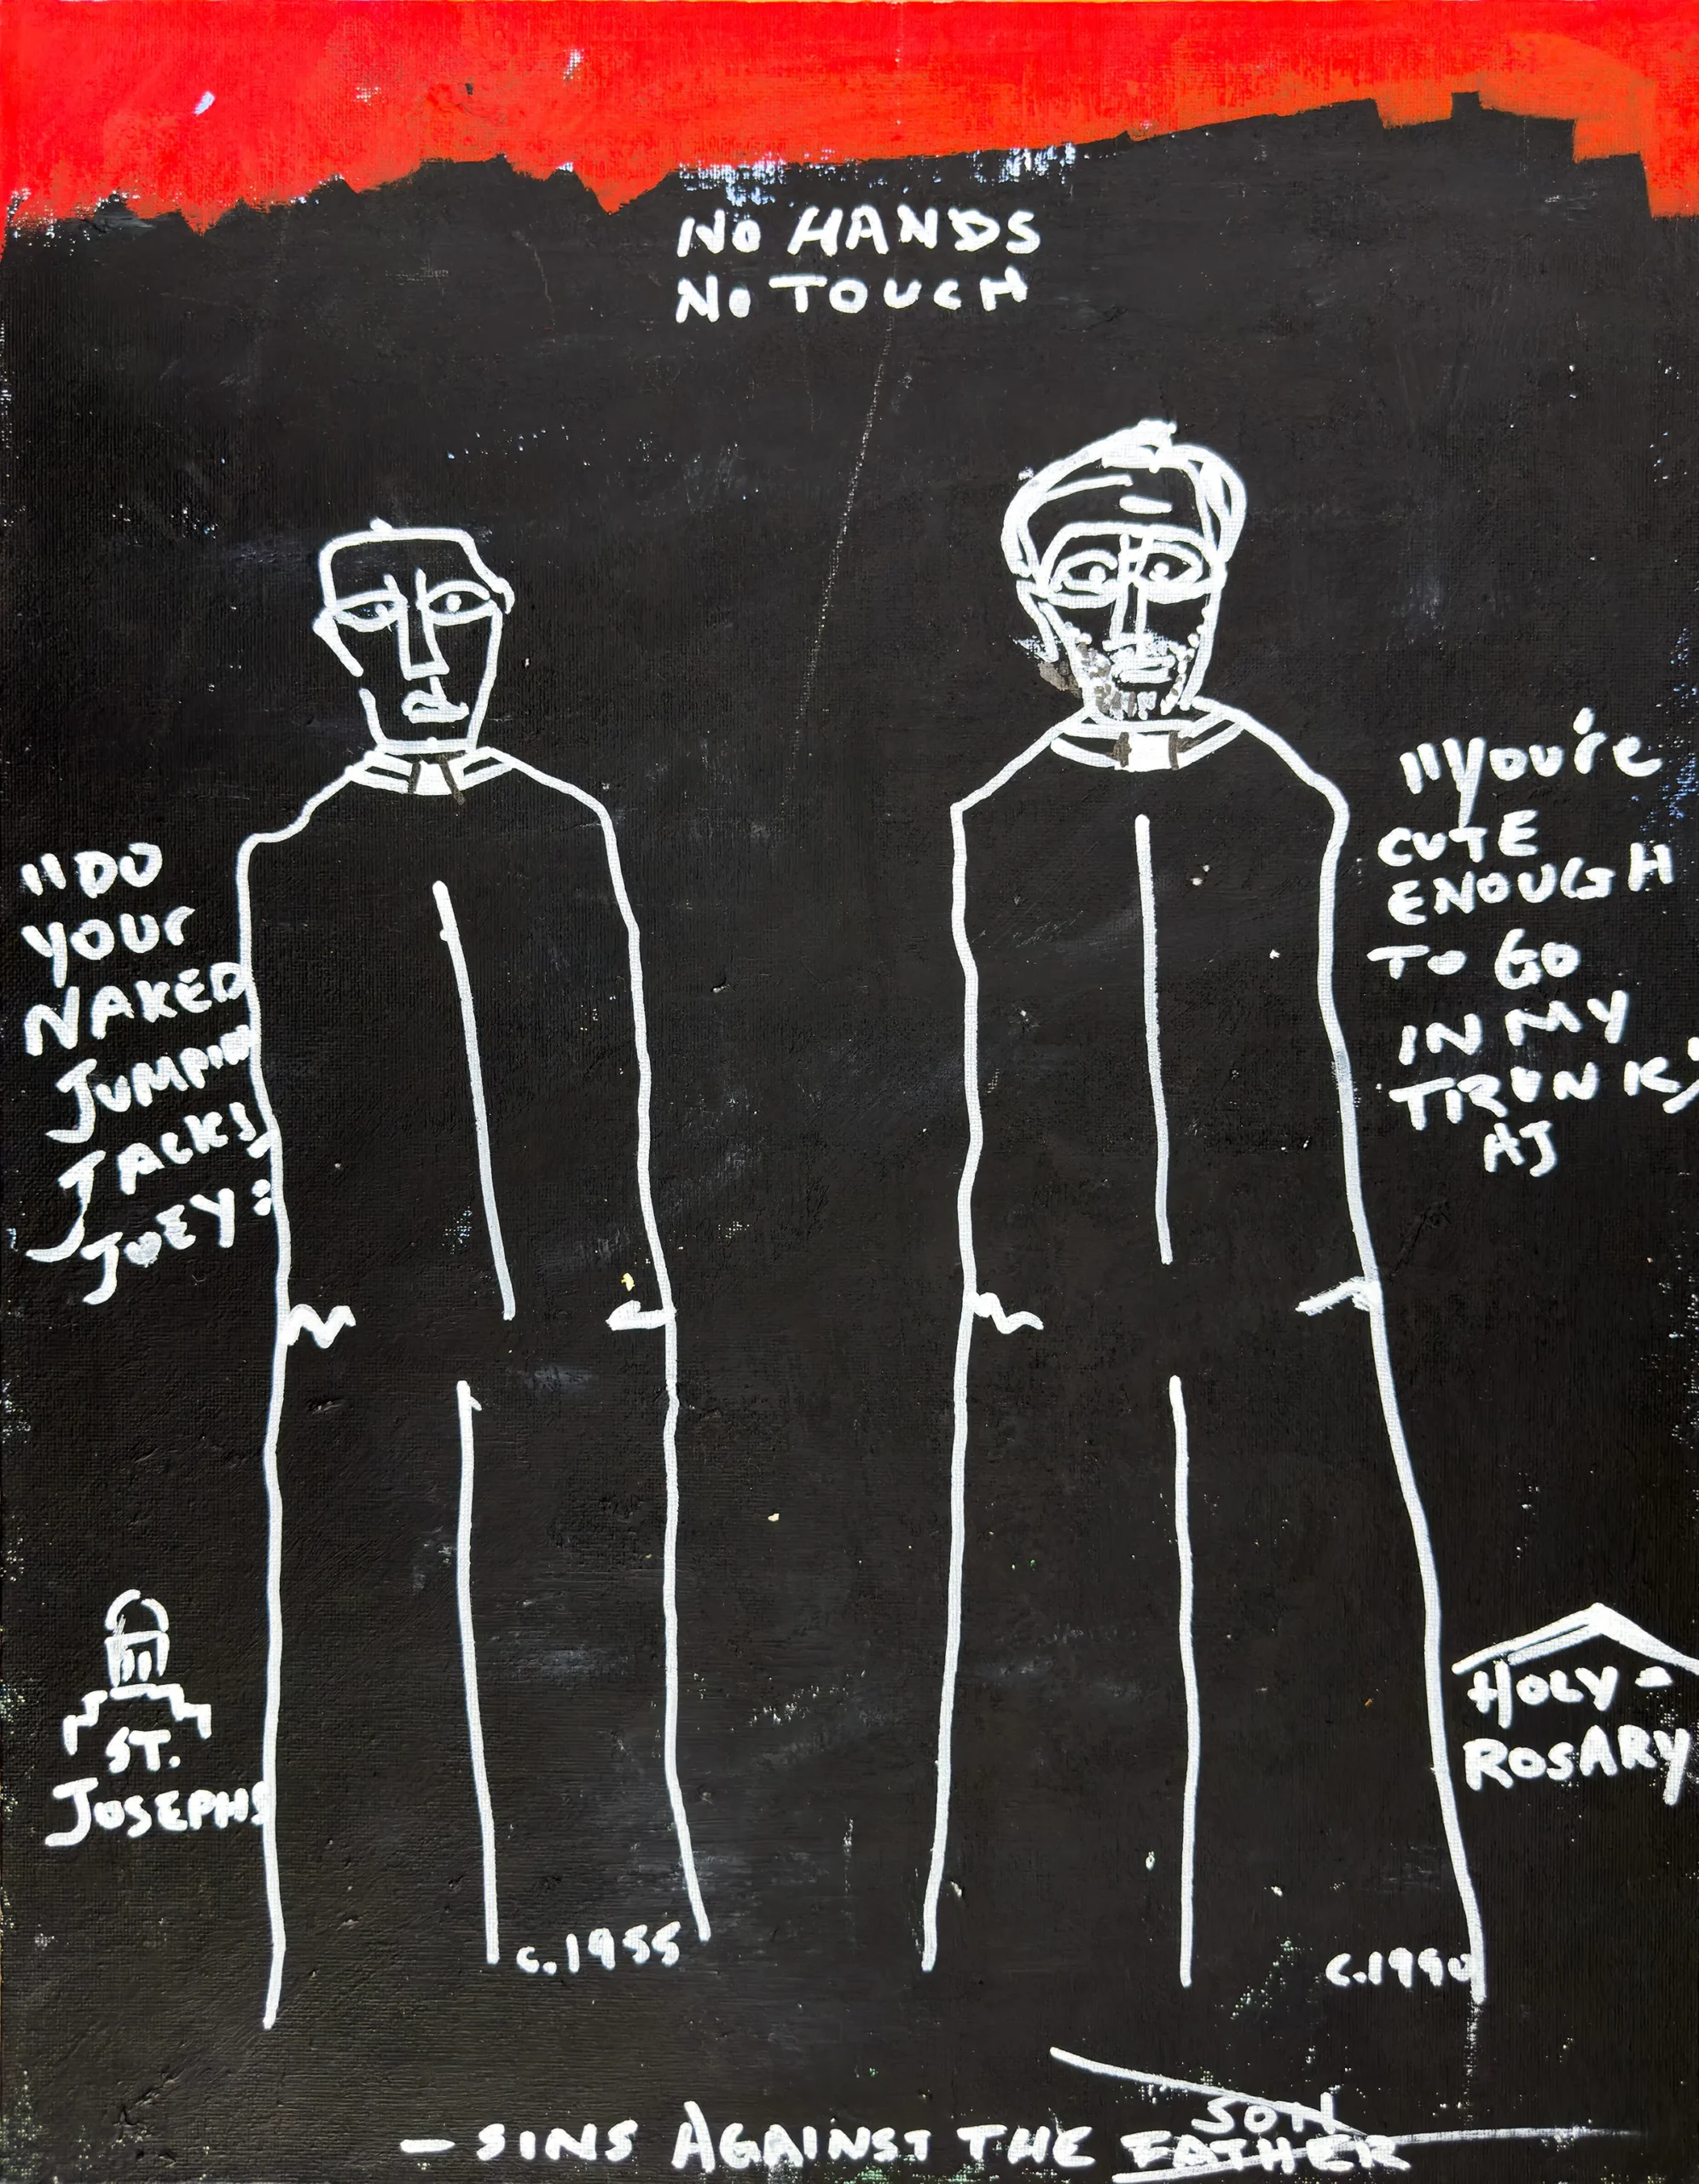 NO HANDS
NO TOUCH
"DO
YOUr
NAKED
JUMPIN
JACKS
JOEY:
"you're
CUTE
ENOUGH
TO GO
IN MY
TRUNK"
AJ
ST.
JOSEPHS
HOLY-
ROSARY
c.1955
c.1990
SON
- SINS AGAINST THE FATHER